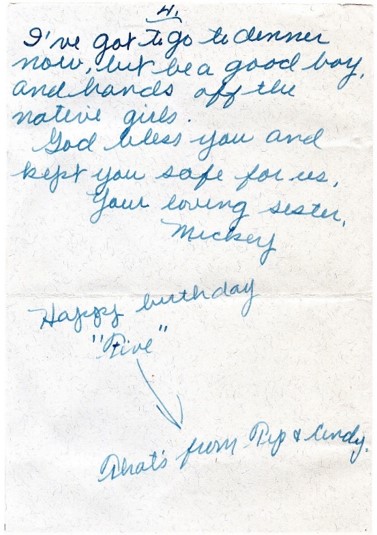 4.
I've got to go to dinner
now, but be a good boy,
and hands off the
native girls.
God bless you and
kept you safe for us,
Your loving sister,
Mickey
Happy birthday
"Pive"
That's from Pip & Cindy.